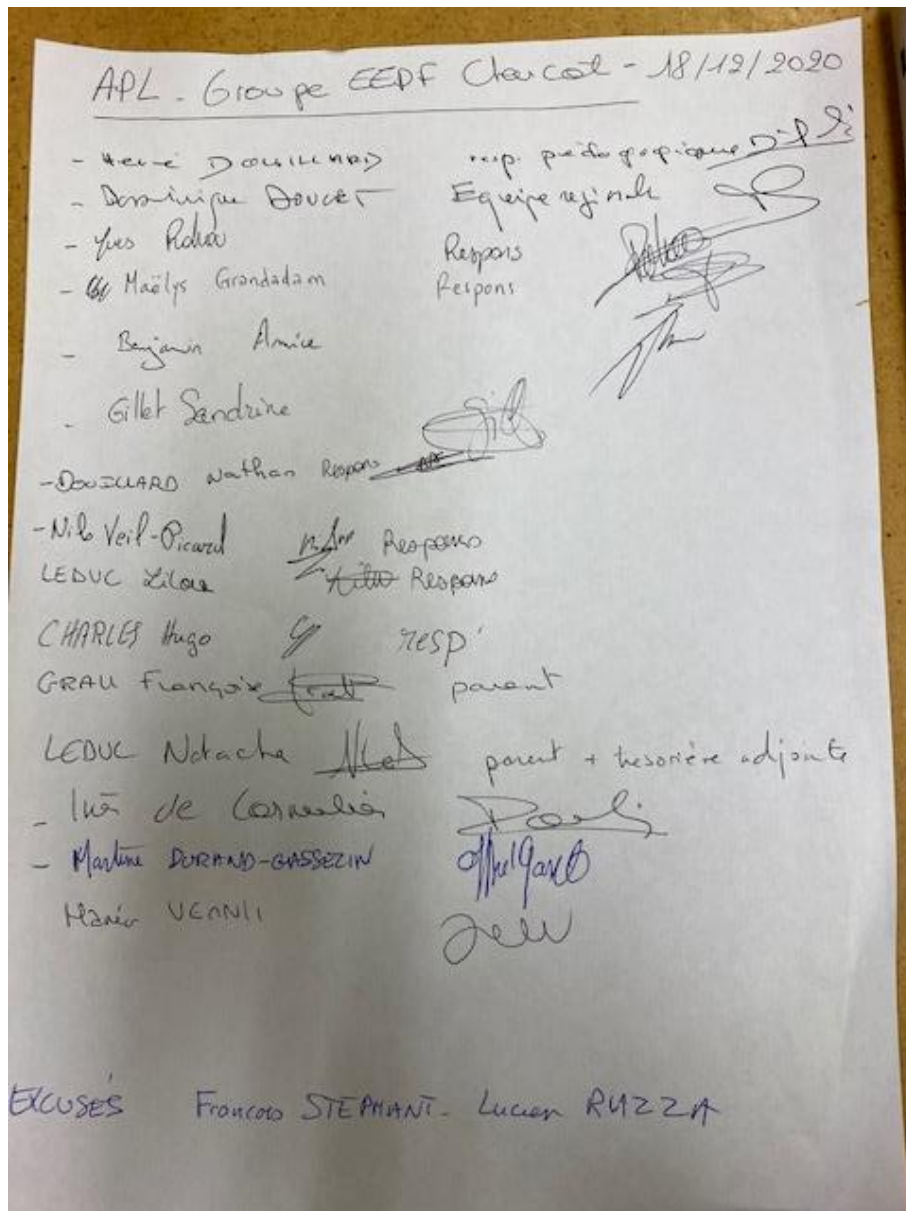 APL - Groupe EEDF Charcot - 18/12/2020
- Hervé DOUILLARD resp. pédagogique
- Dominique DOUCET Equipe régionale
- Yves Respons
- Maëlys Grandadam Respons
- Benjamin Amice
- Gillet Sandrine
- DOUILLARD Nathan Respons
- Nils Veil-Picard Respons
LEDUC Lilou Respons
CHARLES Hugo resp'
GRAU Françoise parent
LEDUC Natacha parent + trésorière adjointe
- Inès de
- Martine DURAND-GASSELIN
EXCUSÉS François STEPHANT - Lucien RUZZA